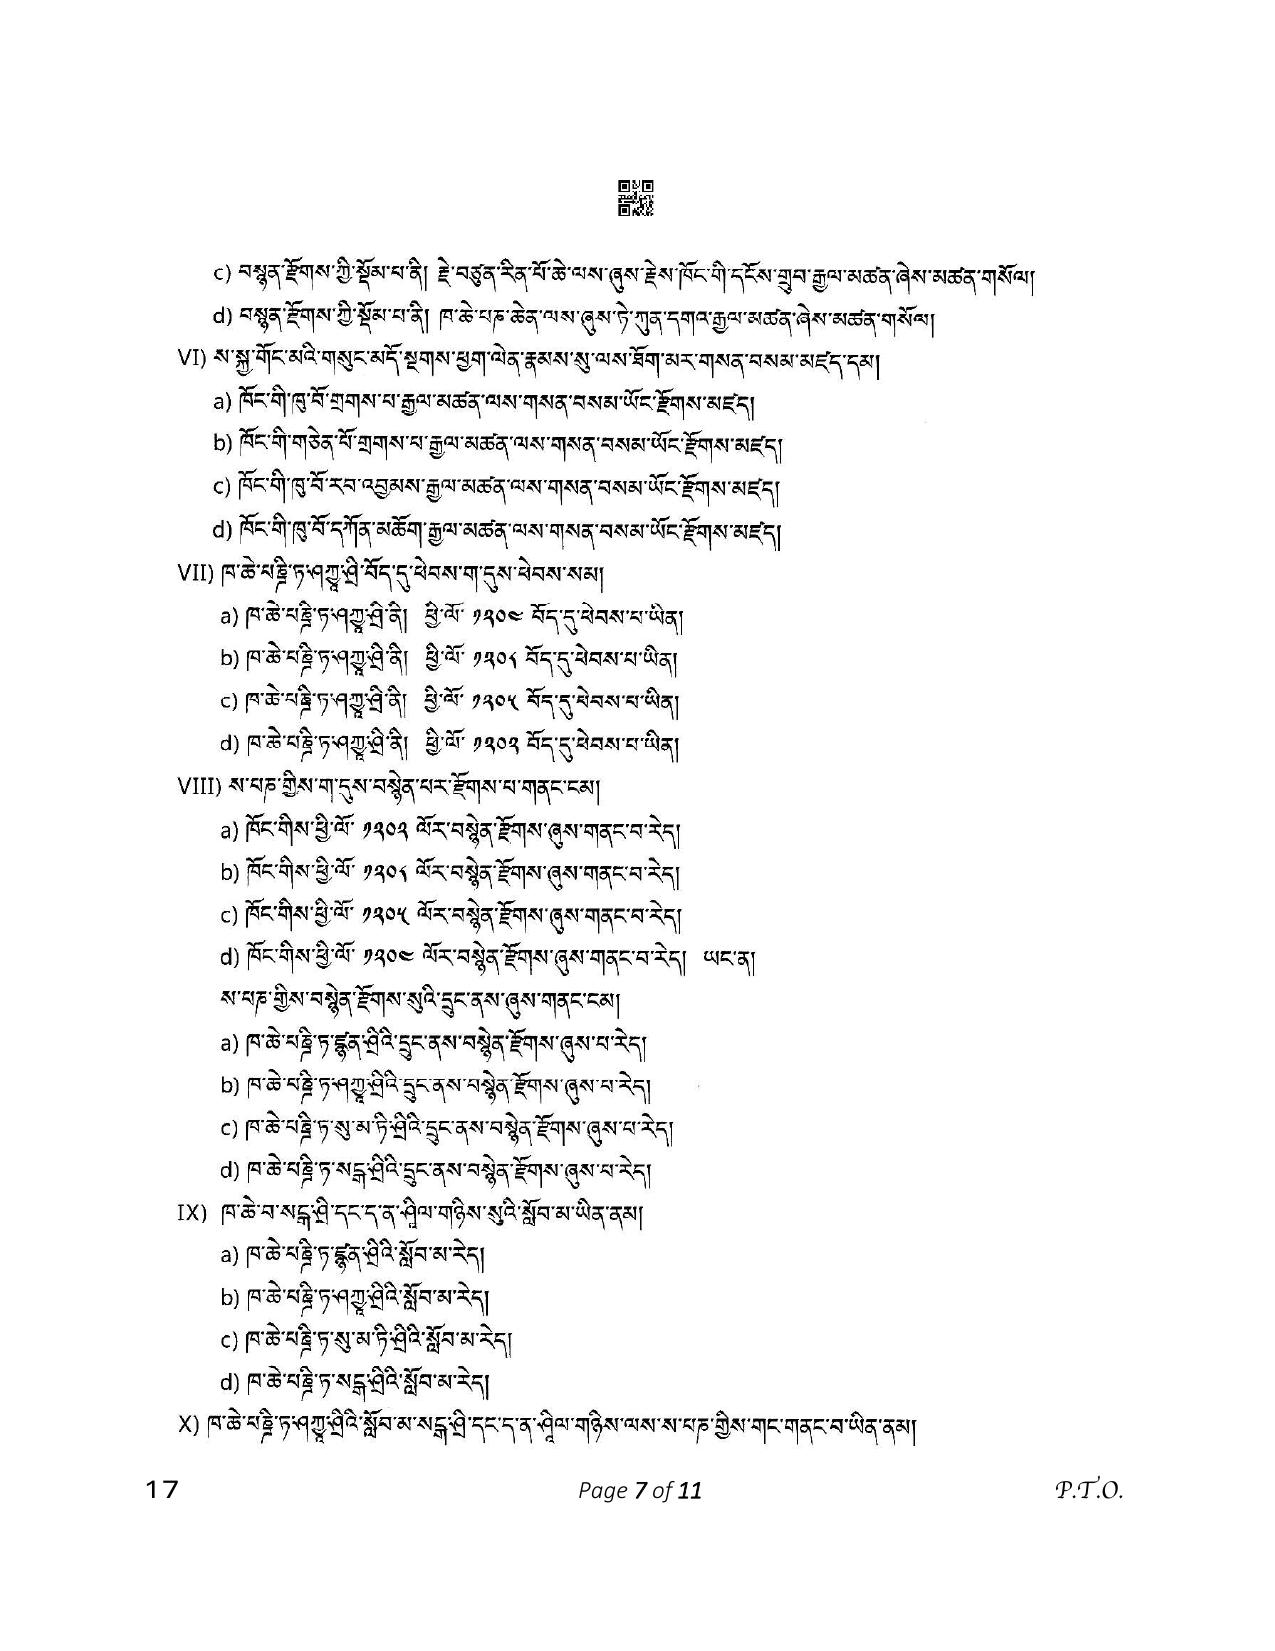 c) བསྙན་རྫོགས་ཀྱི་སྡོམ་པ་ནི། རྗེ་བཙུན་རིན་པོ་ཆེ་ལས་ཞུས་རྗེས་ཁོང་གི་དངོས་གྲུབ་རྒྱལ་མཚན་ཞེས་མཚན་གསོལ།
d) བསྙན་རྫོགས་ཀྱི་སྡོམ་པ་ནི། ཁ་ཆེ་པཎ་ཆེན་ལས་ཞུས་ཏེ་ཀུན་དགའ་རྒྱལ་མཚན་ཞེས་མཚན་གསོལ།
VI) ས་སྐྱ་གོང་མའི་གསུང་མདོ་སྔགས་ཕྱག་ལེན་རྣམས་སུ་ལས་ཐོག་མར་གསན་བསམ་མཛད་དམ།
a) ཁོང་གི་ཁུ་བོ་གྲགས་པ་རྒྱལ་མཚན་ལས་གསན་བསམ་ཡོང་རྫོགས་མཛད།
b) ཁོང་གི་གཅེན་པོ་གྲགས་པ་རྒྱལ་མཚན་ལས་གསན་བསམ་ཡོང་རྫོགས་མཛད།
c) ཁོང་གི་ཁུ་བོ་རབ་འབྱམས་རྒྱལ་མཚན་ལས་གསན་བསམ་ཡོང་རྫོགས་མཛད།
d) ཁོང་གི་ཁུ་བོ་དཀོན་མཆོག་རྒྱལ་མཚན་ལས་གསན་བསམ་ཡོང་རྫོགས་མཛད།
VII) ཁ་ཆེ་པཎྜི་ཏ་ཤཀྱཱ་ཤྲི་བོད་དུ་ཕེབས་ག་དུས་ཕེབས་སམ།
a) ཁ་ཆེ་པཎྜི་ཏ་ཤཀྱཱ་ཤྲི་ནི། ཕྱི་ལོ་ ༡༢༠༤ བོད་དུ་ཕེབས་པ་ཡིན།
b) ཁ་ཆེ་པཎྜི་ཏ་ཤཀྱཱ་ཤྲི་ནི། ཕྱི་ལོ་ ༡༢༠༨ བོད་དུ་ཕེབས་པ་ཡིན།
c) ཁ་ཆེ་པཎྜི་ཏ་ཤཀྱཱ་ཤྲི་ནི། ཕྱི་ལོ་ ༡༢༠༥ བོད་དུ་ཕེབས་པ་ཡིན།
d) ཁ་ཆེ་པཎྜི་ཏ་ཤཀྱཱ་ཤྲི་ནི། ཕྱི་ལོ་ ༡༢༠༢ བོད་དུ་ཕེབས་པ་ཡིན།
VIII) ས་པཎ་གྱིས་ག་དུས་བསྙེན་པར་རྫོགས་པ་གནང་ངམ།
a) ཁོང་གིས་ཕྱི་ལོ་ ༡༢༠༢ ལོར་བསྙེན་རྫོགས་ཞུས་གནང་བ་རེད།
b) ཁོང་གིས་ཕྱི་ལོ་ ༡༢༠༨ ལོར་བསྙེན་རྫོགས་ཞུས་གནང་བ་རེད།
c) ཁོང་གིས་ཕྱི་ལོ་ ༡༢༠༥ ལོར་བསྙེན་རྫོགས་ཞུས་གནང་བ་རེད།
d) ཁོང་གིས་ཕྱི་ལོ་ ༡༢༠༤ ལོར་བསྙེན་རྫོགས་ཞུས་གནང་བ་རེད། ཡང་ན།
ས་པཎ་གྱིས་བསྙེན་རྫོགས་སུའི་དྲུང་ནས་ཞུས་གནང་ངམ།
a) ཁ་ཆེ་པཎྜི་ཏ་ཛྙན་ཤྲིའི་དྲུང་ནས་བསྙེན་རྫོགས་ཞུས་པ་རེད།
b) ཁ་ཆེ་པཎྜི་ཏ་ཤཀྱཱ་ཤྲིའི་དྲུང་ནས་བསྙེན་རྫོགས་ཞུས་པ་རེད།
c) ཁ་ཆེ་པཎྜི་ཏ་སུ་མ་ཏི་ཤྲིའི་དྲུང་ནས་བསྙེན་རྫོགས་ཞུས་པ་རེད།
d) ཁ་ཆེ་པཎྜི་ཏ་སངྒ་ཤྲིའི་དྲུང་ནས་བསྙེན་རྫོགས་ཞུས་པ་རེད།
IX) ཁ་ཆེ་བ་སངྒ་ཤྲི་དང་ད་ན་ཤཱིལ་གཉིས་སུའི་སློབ་མ་ཡིན་ནམ།
a) ཁ་ཆེ་པཎྜི་ཏ་ཛྙན་ཤྲིའི་སློབ་མ་རེད།
b) ཁ་ཆེ་པཎྜི་ཏ་ཤཀྱཱ་ཤྲིའི་སློབ་མ་རེད།
c) ཁ་ཆེ་པཎྜི་ཏ་སུ་མ་ཏི་ཤྲིའི་སློབ་མ་རེད།
d) ཁ་ཆེ་པཎྜི་ཏ་སངྒ་ཤྲིའི་སློབ་མ་རེད།
X) ཁ་ཆེ་པཎྜི་ཏ་ཤཀྱཱ་ཤྲིའི་སློབ་མ་སངྒ་ཤྲི་དང་ད་ན་ཤཱིལ་གཉིས་ལས་ས་པཎ་གྱིས་གང་གནང་བ་ཡིན་ནམ།
17 Page 7 of 11 P.T.O.